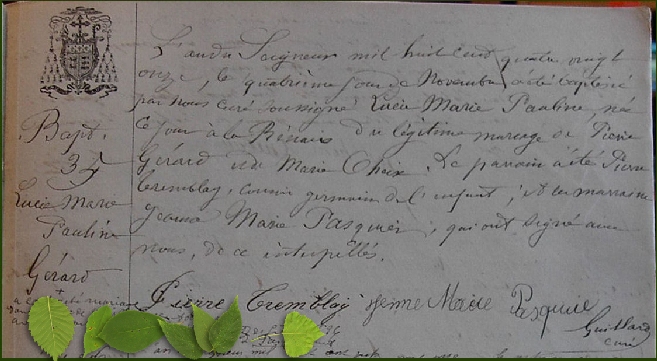 L'an du Seigneur mil huit cent quatre vingt
onze, le quatrième jour de Novembre a été baptisé
par nous curé soussigné Lucie Marie Pauline, née
ce jour à la Binais du légitime mariage de Pierre
Gérard et de Marie Choix. Le parrain a été Pierre
Tremblay, cousin germain de l'enfant; et la marraine
Jeanne Marie Pasquier, qui ont signé avec
nous, de ce interpellés.
Pierre Tremblay Jenne Marie Pasquie
Guillard
curé
Bapt.
35
Lucie Marie
Pauline
Gérard